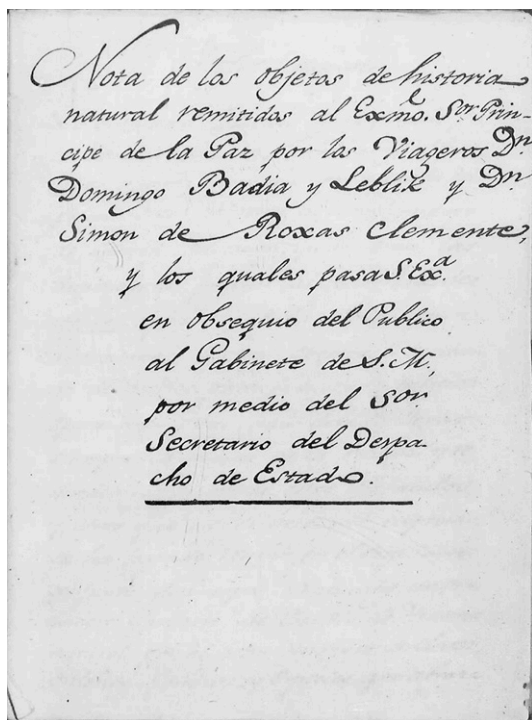 Nota de los objetos de historia
natural remitidos al Exmõ. Sor Prin-
cipe de la Paz por los Viageros Dn
Domingo Badia y Leblik y Dn
Simon de Roxas Clemente,
y los quales pasa S. Exa.
en obsequio del Publico
al Gabinete de S. M.
por medio del Sor
Secretario del Despa-
cho de Estado.